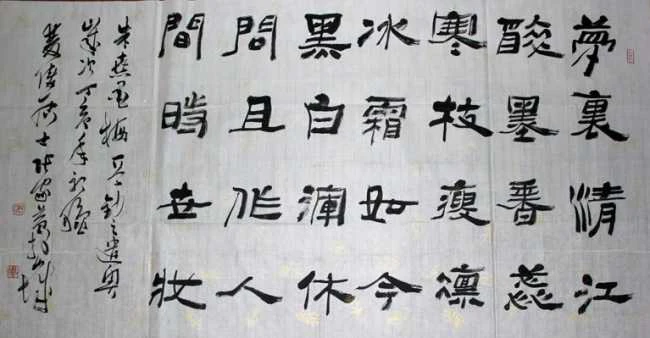 夢裏清江
醉墨香蕊
寒枝瘦凜
冰霜如今
黑白渾休
問且作人
間時世妝
朱熹墨梅
歲次丁亥年初